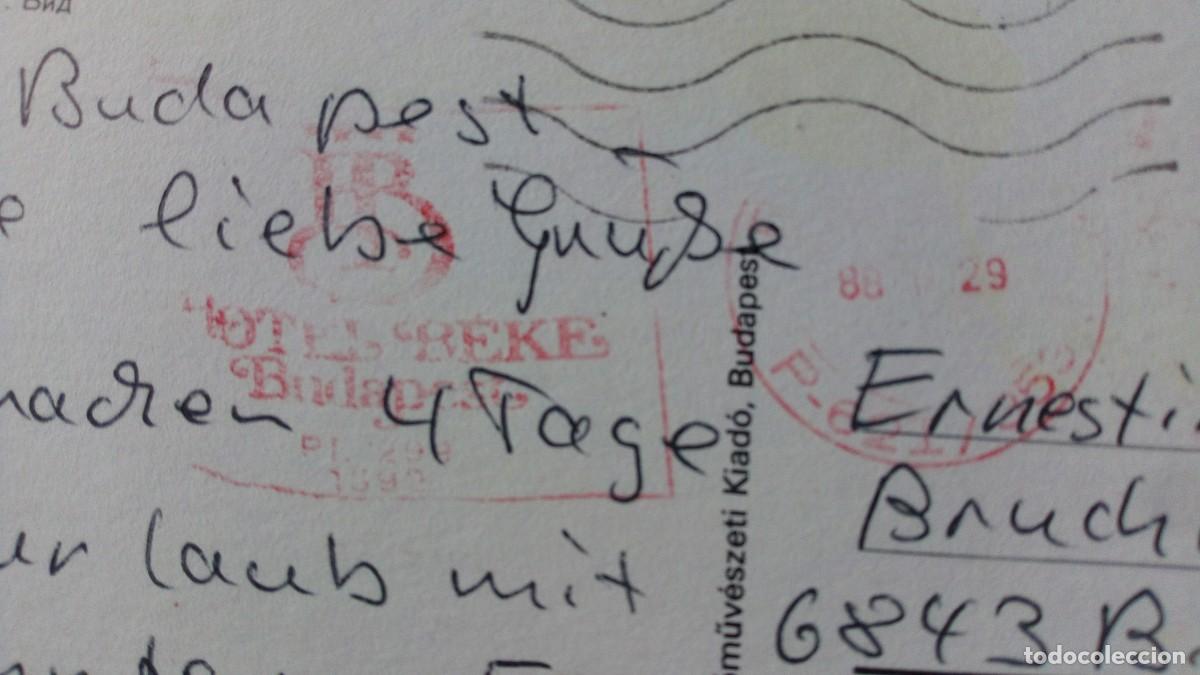 Вид
Budapest
e liebe Grüße
machen 4 Tage
urlaub mit
HOTEL BÉKE
Budapest
88 29
P-6217
Képzőművészeti Kiadó, Budapest
Ernesti
Bruch
6843 B
todocoleccion